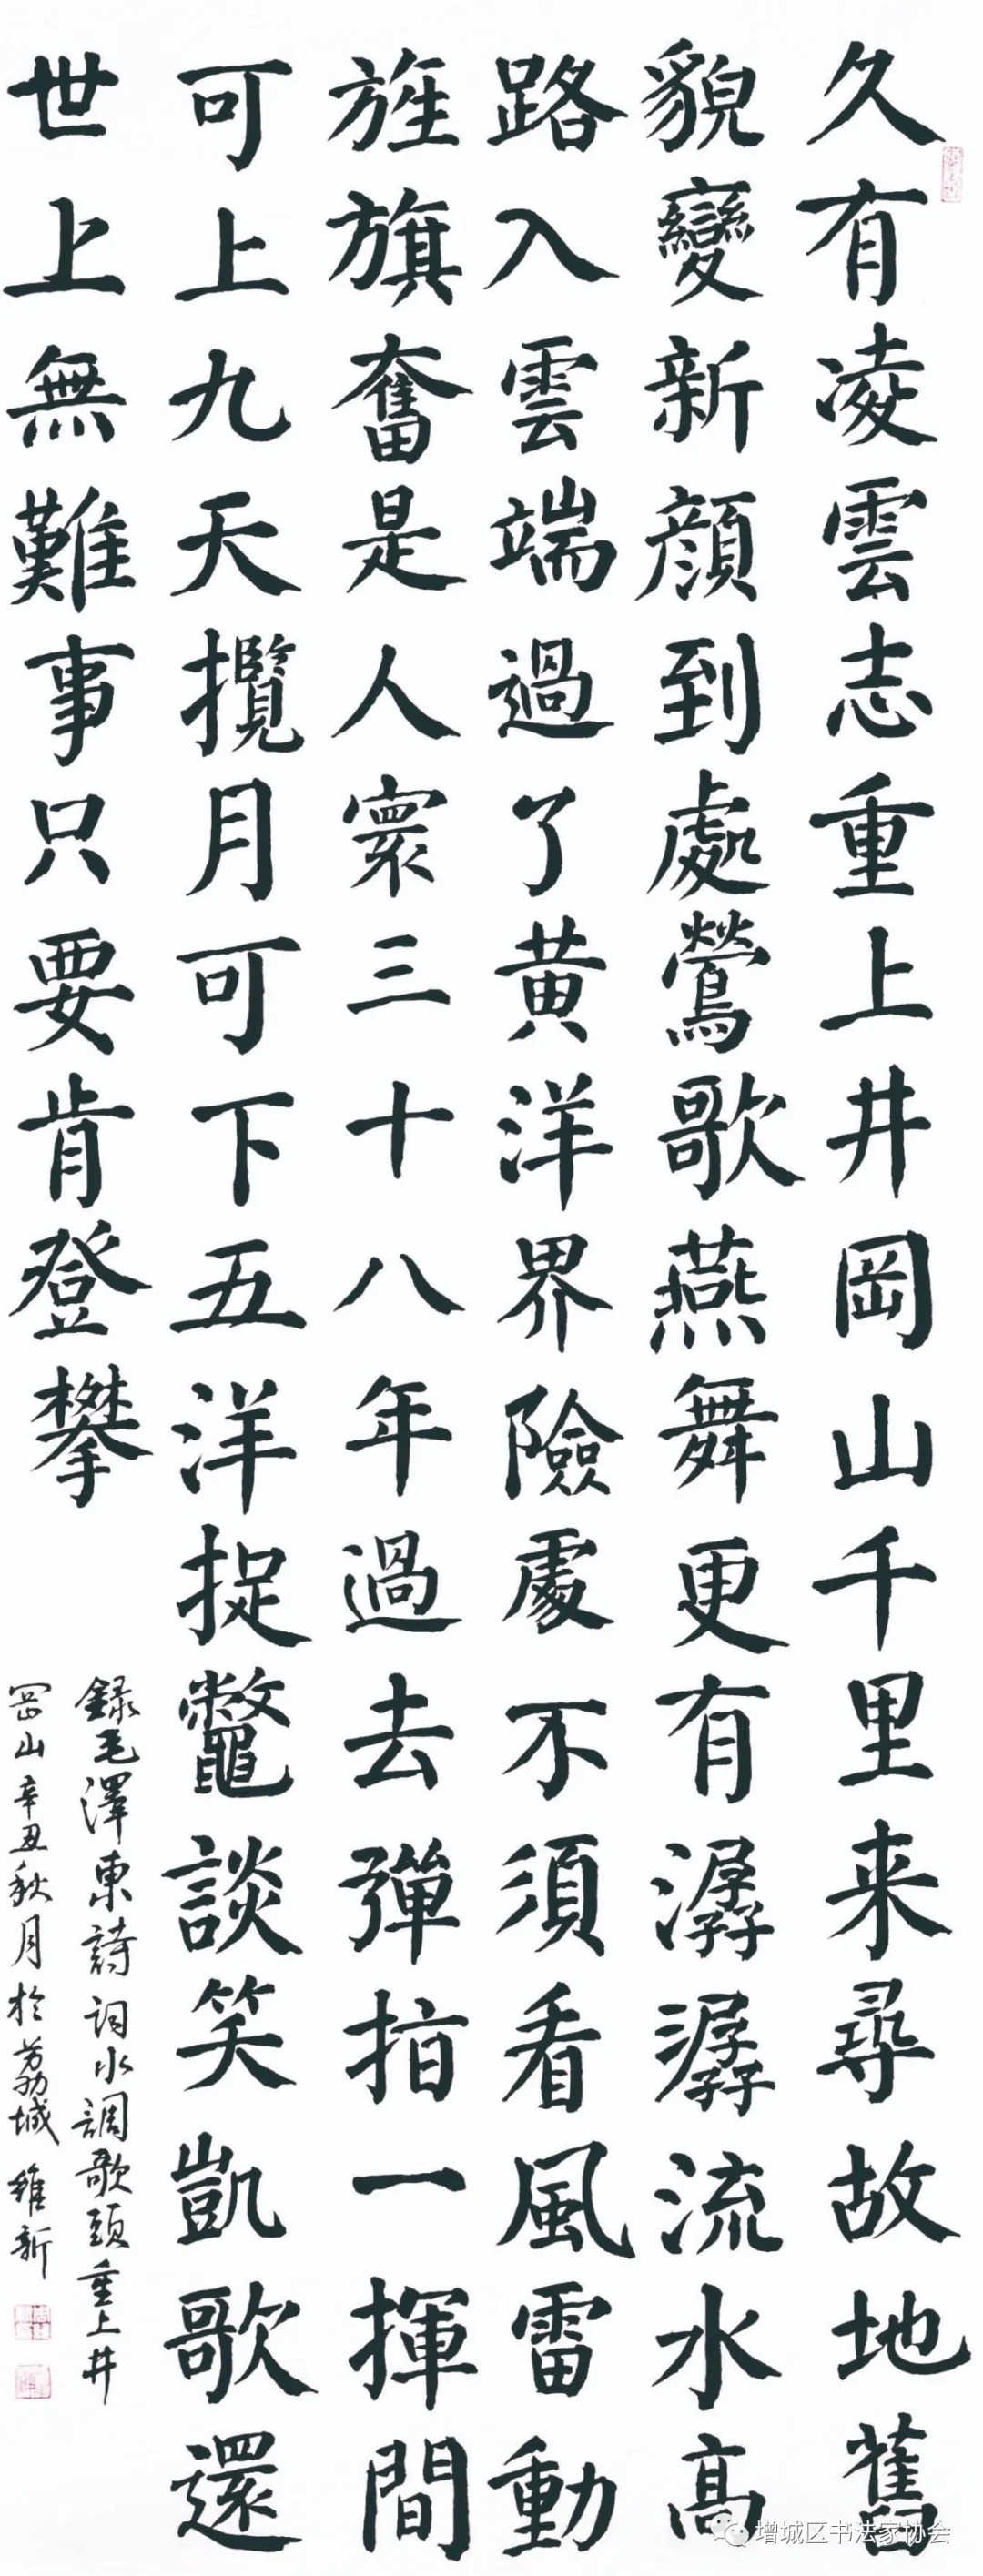 久有凌雲志重上井岡山千里来尋故地舊
貌變新顔到處鶯歌燕舞更有潺潺流水高
路入雲端過了黄洋界險處不須看風雷動
旌旗奮是人寰三十八年過去彈指一揮間
可上九天攬月可下五洋捉鼈談笑凱歌還
世上無難事只要肯登攀
録毛澤東詩詞水調歌頭重上井
岡山辛丑秋月於荔城維新
增城区书法家协会